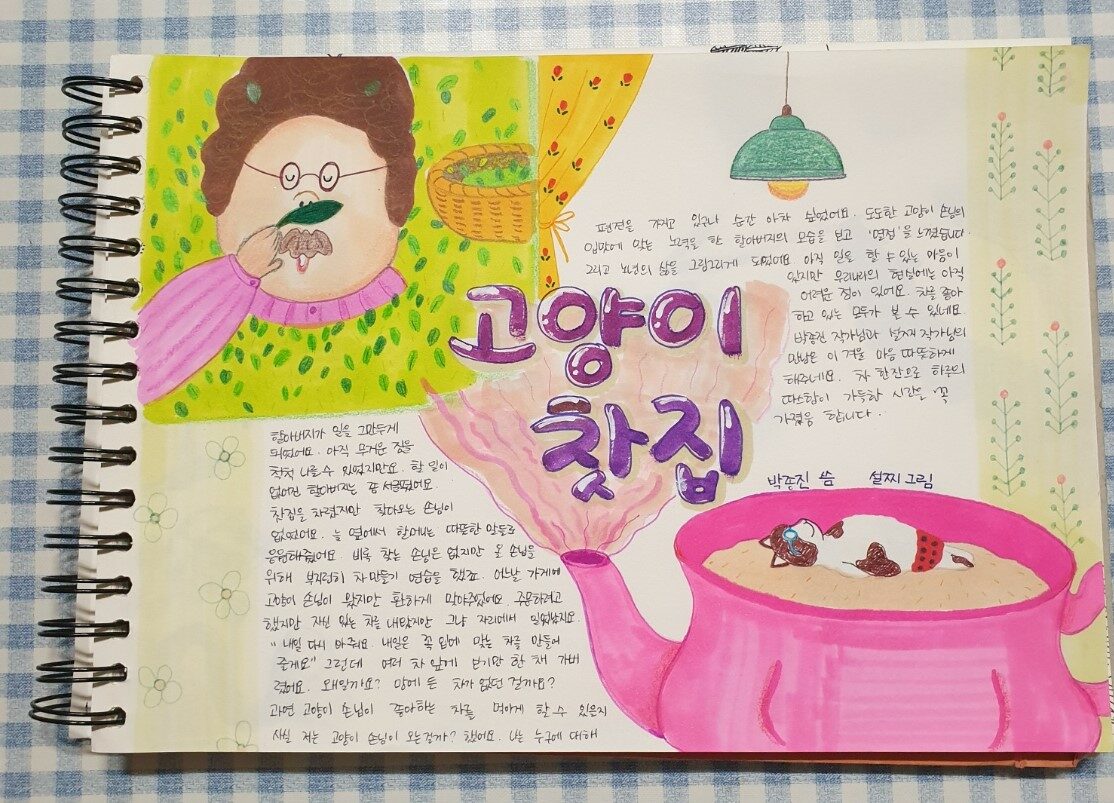 고양이
찻집
박종진 씀 설찌 그림
할아버지가 일을 그만두게
되었어요. 아직 무거운 짐을
척척 나를 수 있었지만요. 할 일이
없어진 할아버지는 좀 서글펐어요.
찻집을 차렸지만 찾아오는 손님이
없었어요. 늘 옆에서 할머니는 따뜻한 말들로
응원해주었어요. 비록 찾는 손님은 없지만 올 손님을
위해 부지런히 차 만들기 연습을 했죠. 어느날 가게에
고양이 손님이 왔지만 환하게 맞아주었어요. 주문하려고
했지만 자신 있는 차를 내왔지만 그냥 자리에서 일어났지요.
"내일 다시 와줘요. 내일은 꼭 입에 맞는 차를 만들어
줄게요" 그런데 여러 차 앞에 보기만 한 채 가버
렸어요. 왜일까요? 맘에 든 차가 없던 걸까요?
과연 고양이 손님이 좋아하는 차를 먹게 할 수 있을지
사실 저는 고양이 손님이 오는걸까? 했어요. 나는 누구에 대해
편견을 가지고 있구나 순간 아차 싶었어요. 도도한 고양이 손님의
입맛에 맞는 노력을 한 할아버지의 모습을 보고 '열정'을 느꼈습니다.
그리고 노년의 삶을 그림그리게 되었어요 아직 일도 할 수 있는 마음이
있지만 우리나라의 현실에는 아직
어려운 점이 있어요. 차를 좋아
하고 있는 모두가 볼 수 있네요
박종진 작가님과 설찌 작가님의
만남은 이 겨울 마음 따뜻하게
해주네요. 차 한잔으로 하루의
따스함이 가득한 시간을 꼭
가졌음 합니다.